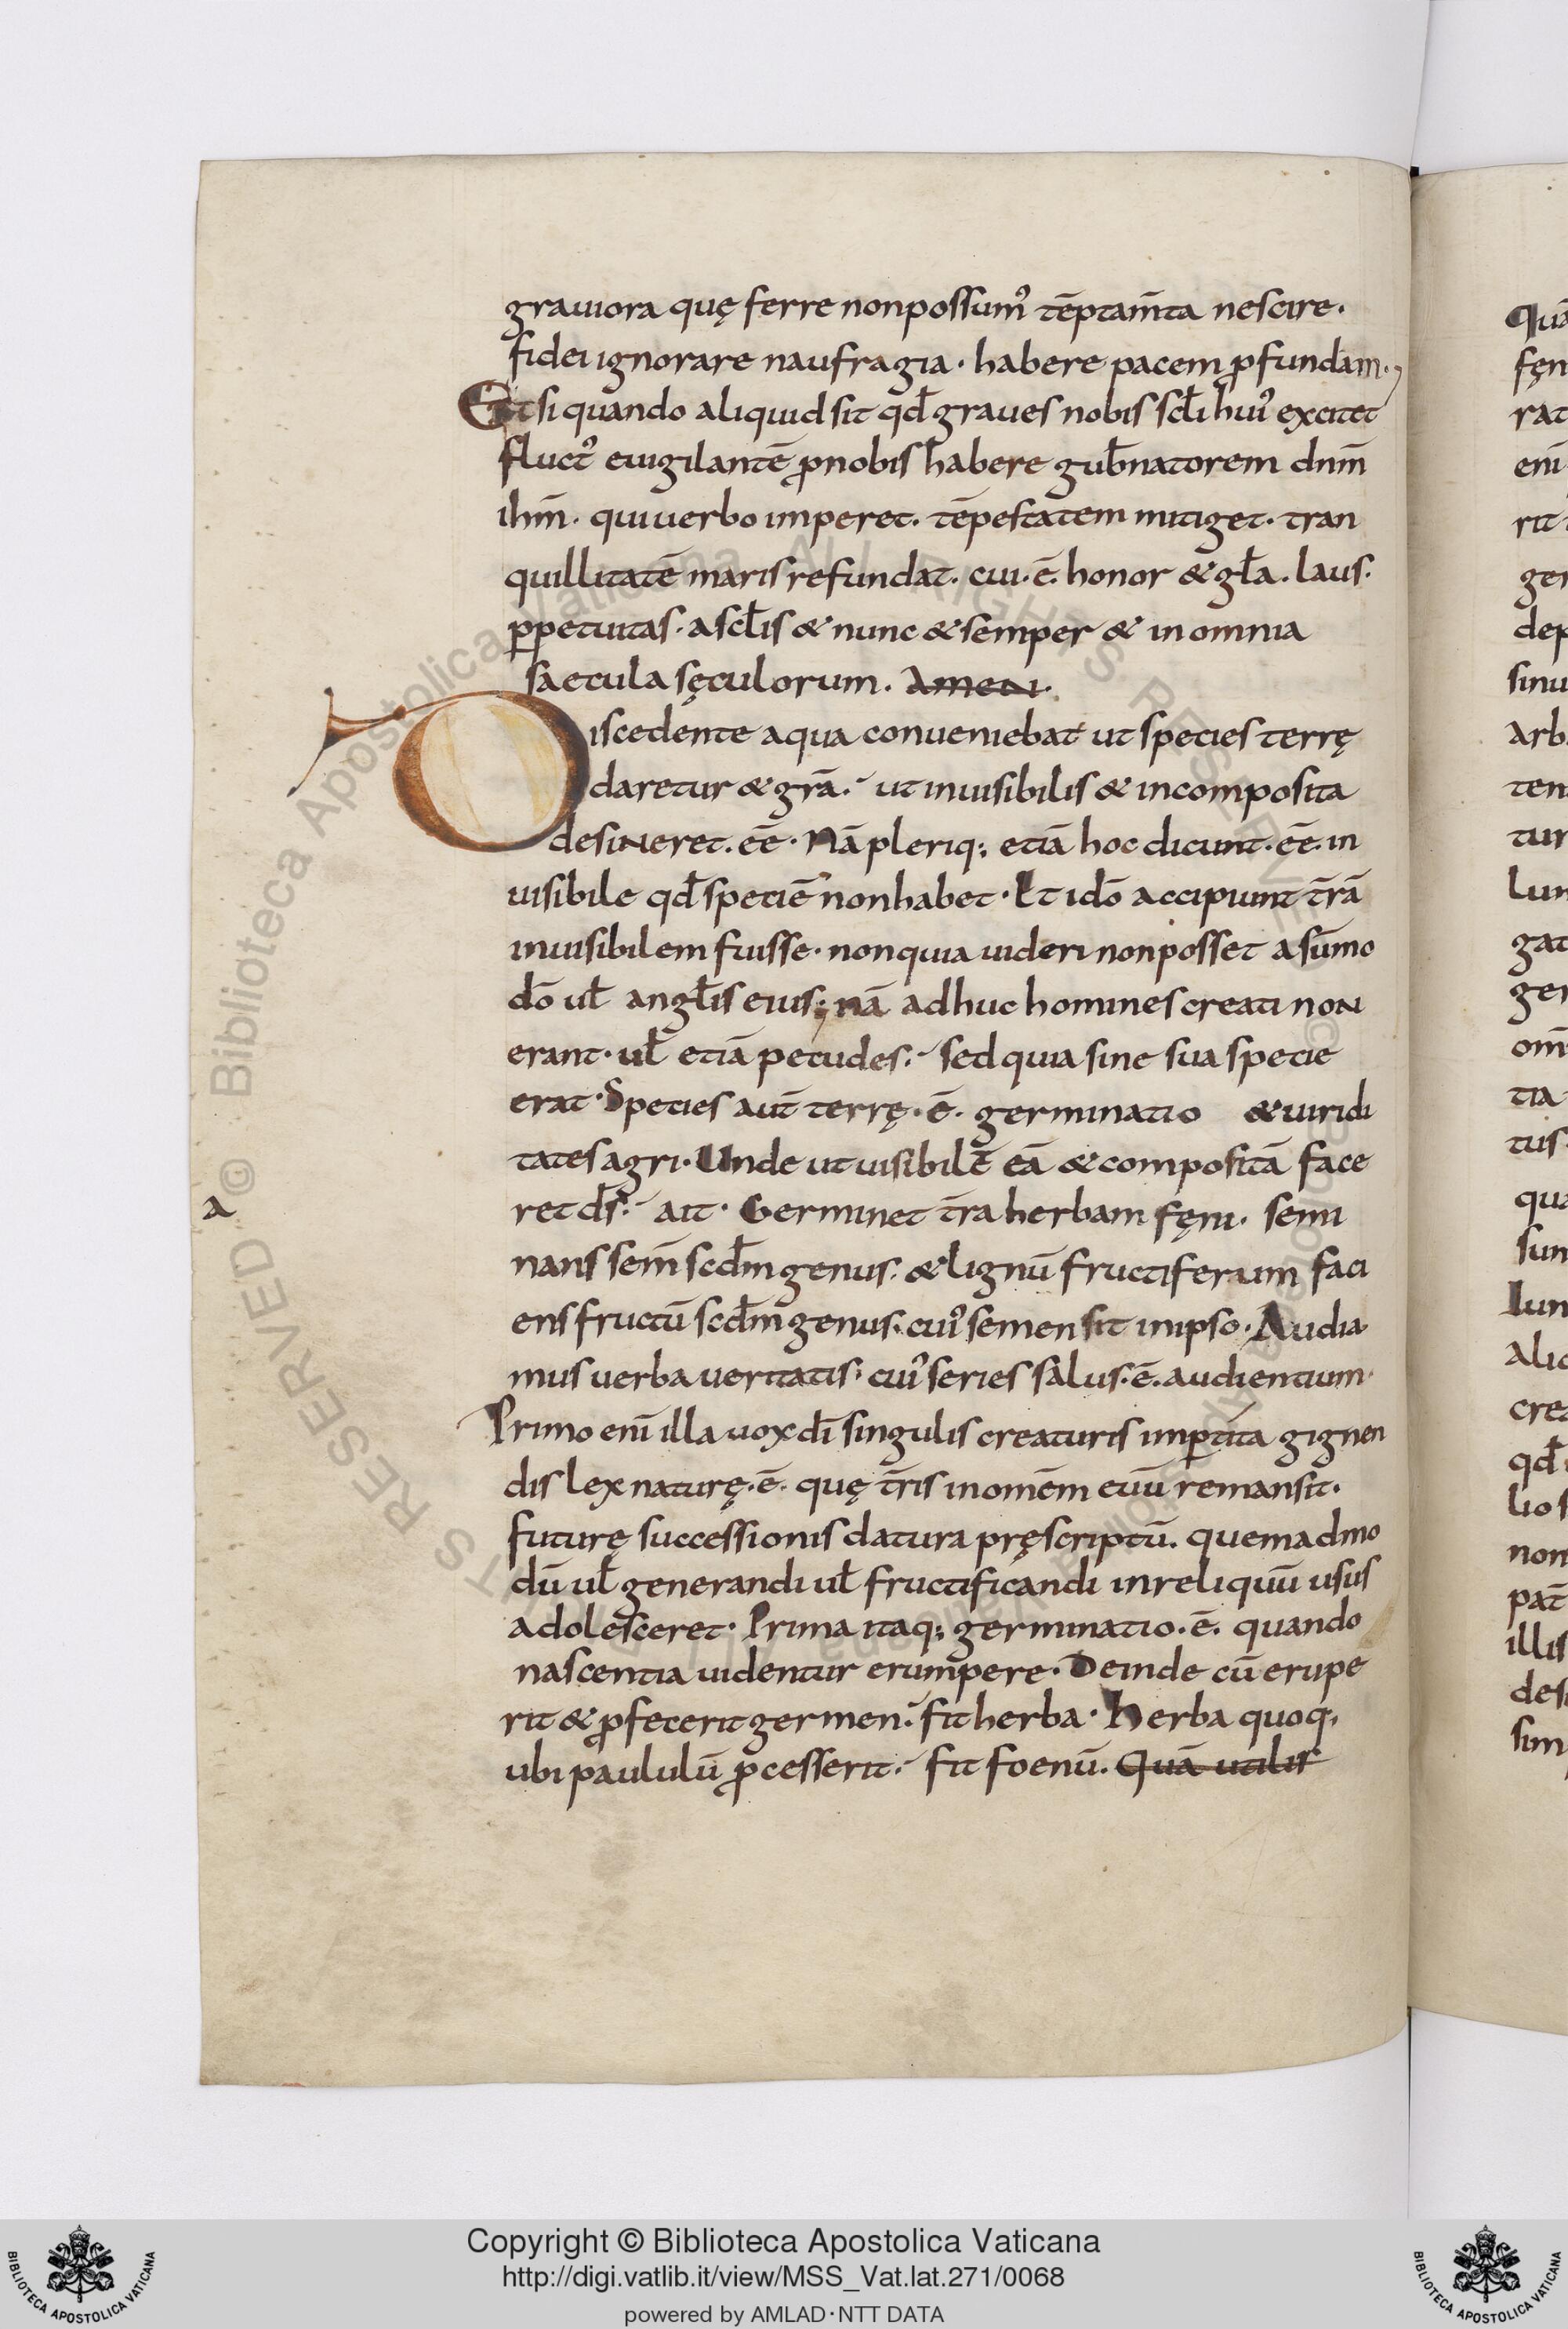 grauiora quę ferre nonpossum᾽ tēptam̄ta nescire·
fidei ignorare naufragia· habere pacem ꝓfundam·,
Et si quando aliquid sit qd̄ graues nobis scl̄i hui᾽ excitet
fluct᾽ euigilantē ꝓnobis habere gub̄natorem dn̄m
ihm̄· qui uerbo imperet· tēpestatem mitiget· tran
quillitatē maris refundat· cui·ē· honor & gl̄a· laus·
ꝑpetuitas· ascl̄is & nunc & semper & in omnia
saecula sęculorum· AmeN·
Discedente aqua conueniebat ut species terrę
daretur & gr̄a·´ ut inuisibilis & incomposita
desiNeret· eē· Nā pleriq; etiā hoc dicunt· eē· in
uisibile qd̄ speciē non habet· Et idō accipiunt tr̄ā
inuisibilem fuisse· non quia uideri non posset asūmo
dō ul̄ angl̄is eius; nā adhuc homines creati noN
erant· ul̄ etiā pecudes·´ sed quia sine sua specie
erat· Species aut̄ terrę·ē· germinatio & uiridi
tates agri· Unde ut uisibilē eā & compositā face
ret ds̄·´ ait· Germinet tr̄a herbam fęni· semi
nans sem̄ scd̄m genus· & lignū fructiferum faci
ens fructū scd̄m genus· cui᾽ semen sit inipso· Audia
mus uerba ueritatis· cui᾽ series salus·ē· audientium·
Primo enī illa uox dī singulis creaturis imꝑtita gignen
dis lex naturę·ē· quę tr̄is inomēm euū remansit·
futurę successionis datura pręscriptū· quemadmo
dū ul̄ generandi ul̄ fructificandi inreliquū usus
adolesceret· Prima itaq; germinatio·ē· quando
nascentia uidentur erumpere· Deinde cū erupe
rit & ꝓfecerit germen·´ fit herba· Herba quoq;
ubi paululū ꝓcesserit·´ fit foenū· Quā utilis
a
Copyright © Biblioteca Apostolica Vaticana
http://digi.vatlib.it/view/MSS_Vat.lat.271/0068
powered by AMLAD·NTT DATA